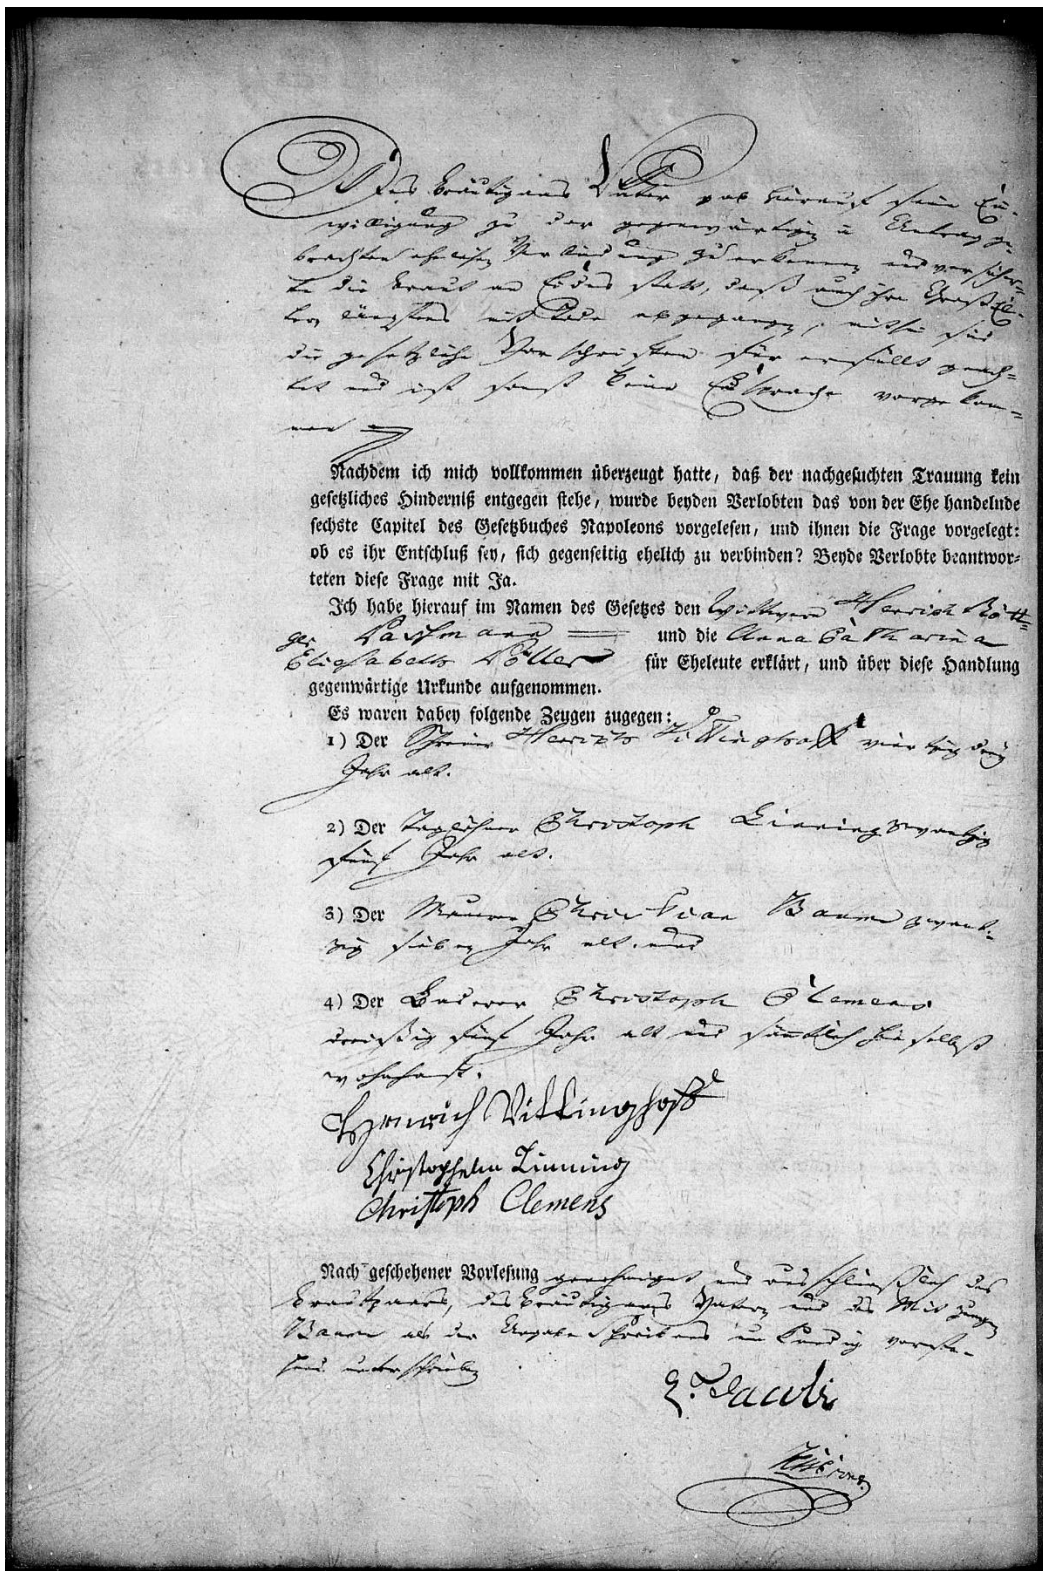 Des Bräutigams Vater gab hierauf seine Ein-
willigung zu der gegenwärtig in Antrag ge-
brachten ehelichen Verbindung zu erkennen und versicher-
te die Braut an Eides statt, daß auch ihre Groß El-
tern längstens mit Tode abgegangen, mithin sind
die gesetzliche Vorschriften für erfüllt geach-
tet und ist sonst keine Einsprache vorgekom-
men
Nachdem ich mich vollkommen überzeugt hatte, daß der nachgesuchten Trauung kein
gesetzliches Hinderniß entgegen stehe, wurde beyden Verlobten das von der Ehe handelnde
sechste Capitel des Gesetzbuches Napoleons vorgelesen, und ihnen die Frage vorgelegt:
ob es ihr Entschluß sey, sich gegenseitig ehelich zu verbinden? Beyde Verlobte beantwor-
teten diese Frage mit Ja.
Ich habe hierauf im Namen des Gesetzes den Wittwer Henrich Rött-
ger und die Anna Catharina
Elisabeth für Eheleute erklärt, und über diese Handlung
gegenwärtige Urkunde aufgenommen.
Es waren dabey folgende Zeugen zugegen:
1) Der Schreiner Henrich Vittinghoff vierzig drey
Jahr alt.
2) Der Taglöhner Christoph Linning zwanzig
fünf Jahr alt.
3) Der Maurer Christian Bauer zwan-
zig sieben Jahr alt und
4) Der Christoph Clemens
dreißig fünf Jahr alt und sämtlich hieselbst
wohnhaft.
Henrich Vittinghoff
Linning
Christoph Clemens
Nach geschehener Vorlesung genehmiget und ausschließlich des
Brautpaars, des Bräutigams Vaters und des Mit Zeugen
Bauer als der Angabe Schreibens unkundig vorste-
hend unterschrieben
Jacobi